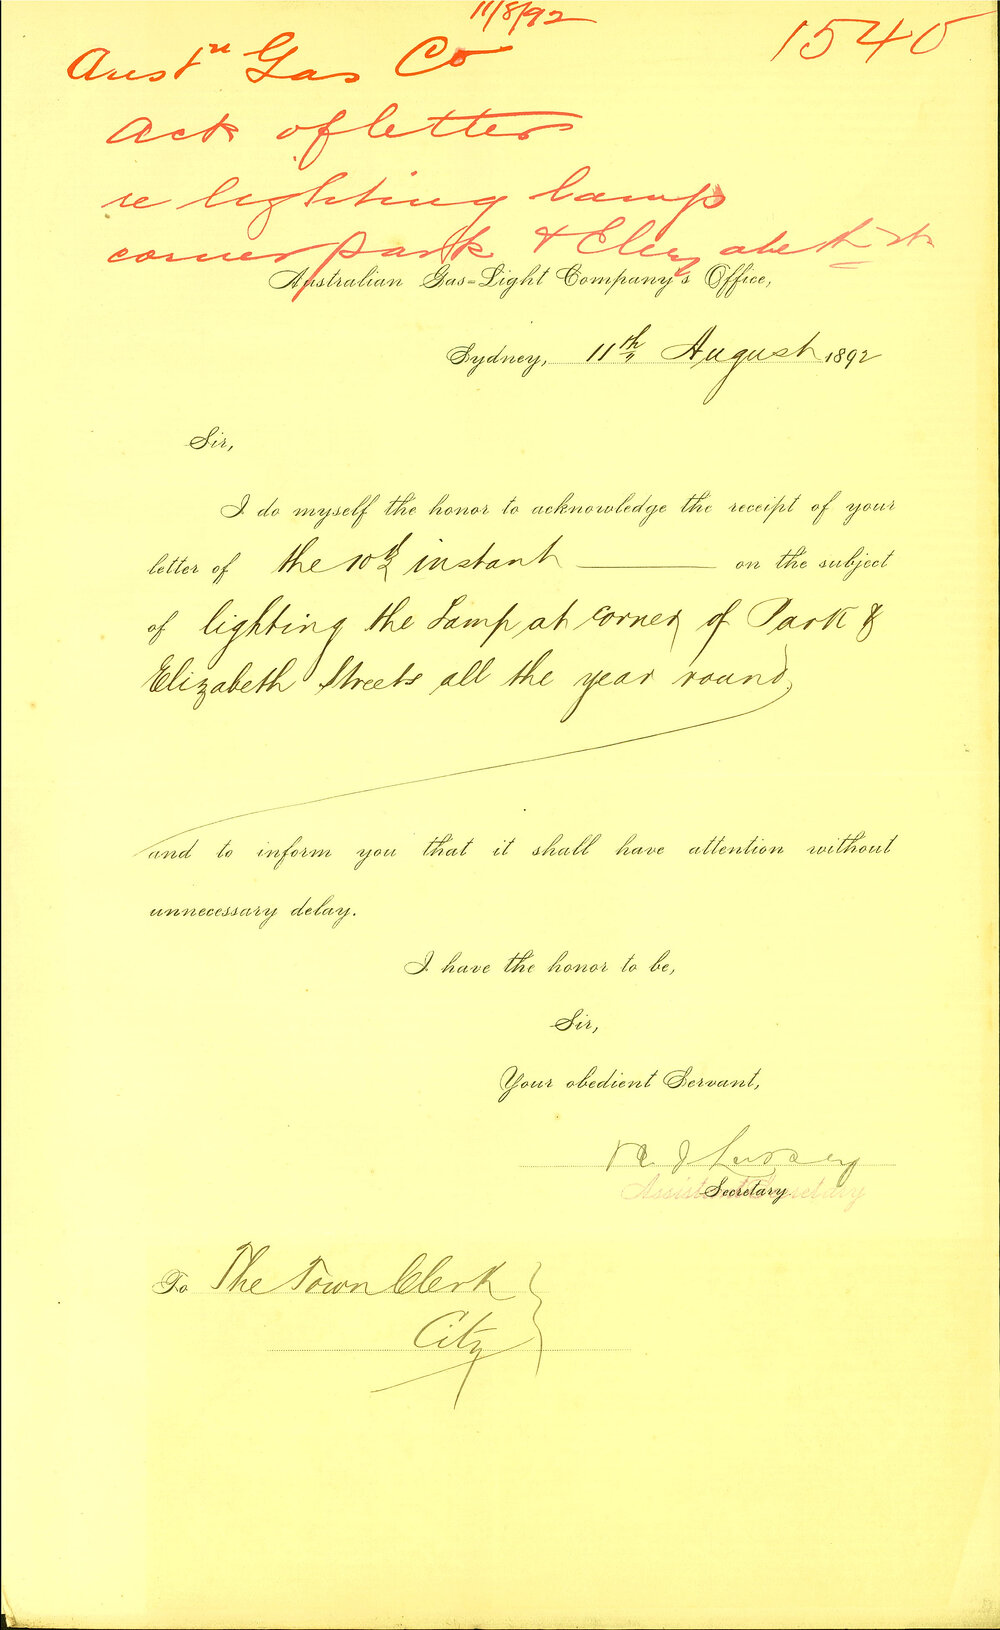 11/8/92
1540
Austn Gas Co
Ack of letter
re lighting lamp
corner Park & Elizabeth Sts
Australian Gas-Light Company's Office,
Sydney, 11th August 1892
Sir,
I do myself the honor to acknowledge the receipt of your
letter of the 10th instant on the subject
of lighting the Lamp at corner of Park &
Elizabeth Streets all the year round
and to inform you that it shall have attention without
unnecessary delay.
I have the honor to be,
Sir,
Your obedient Servant,
Assistant Secretary
Secretary
To The Town Clerk
City